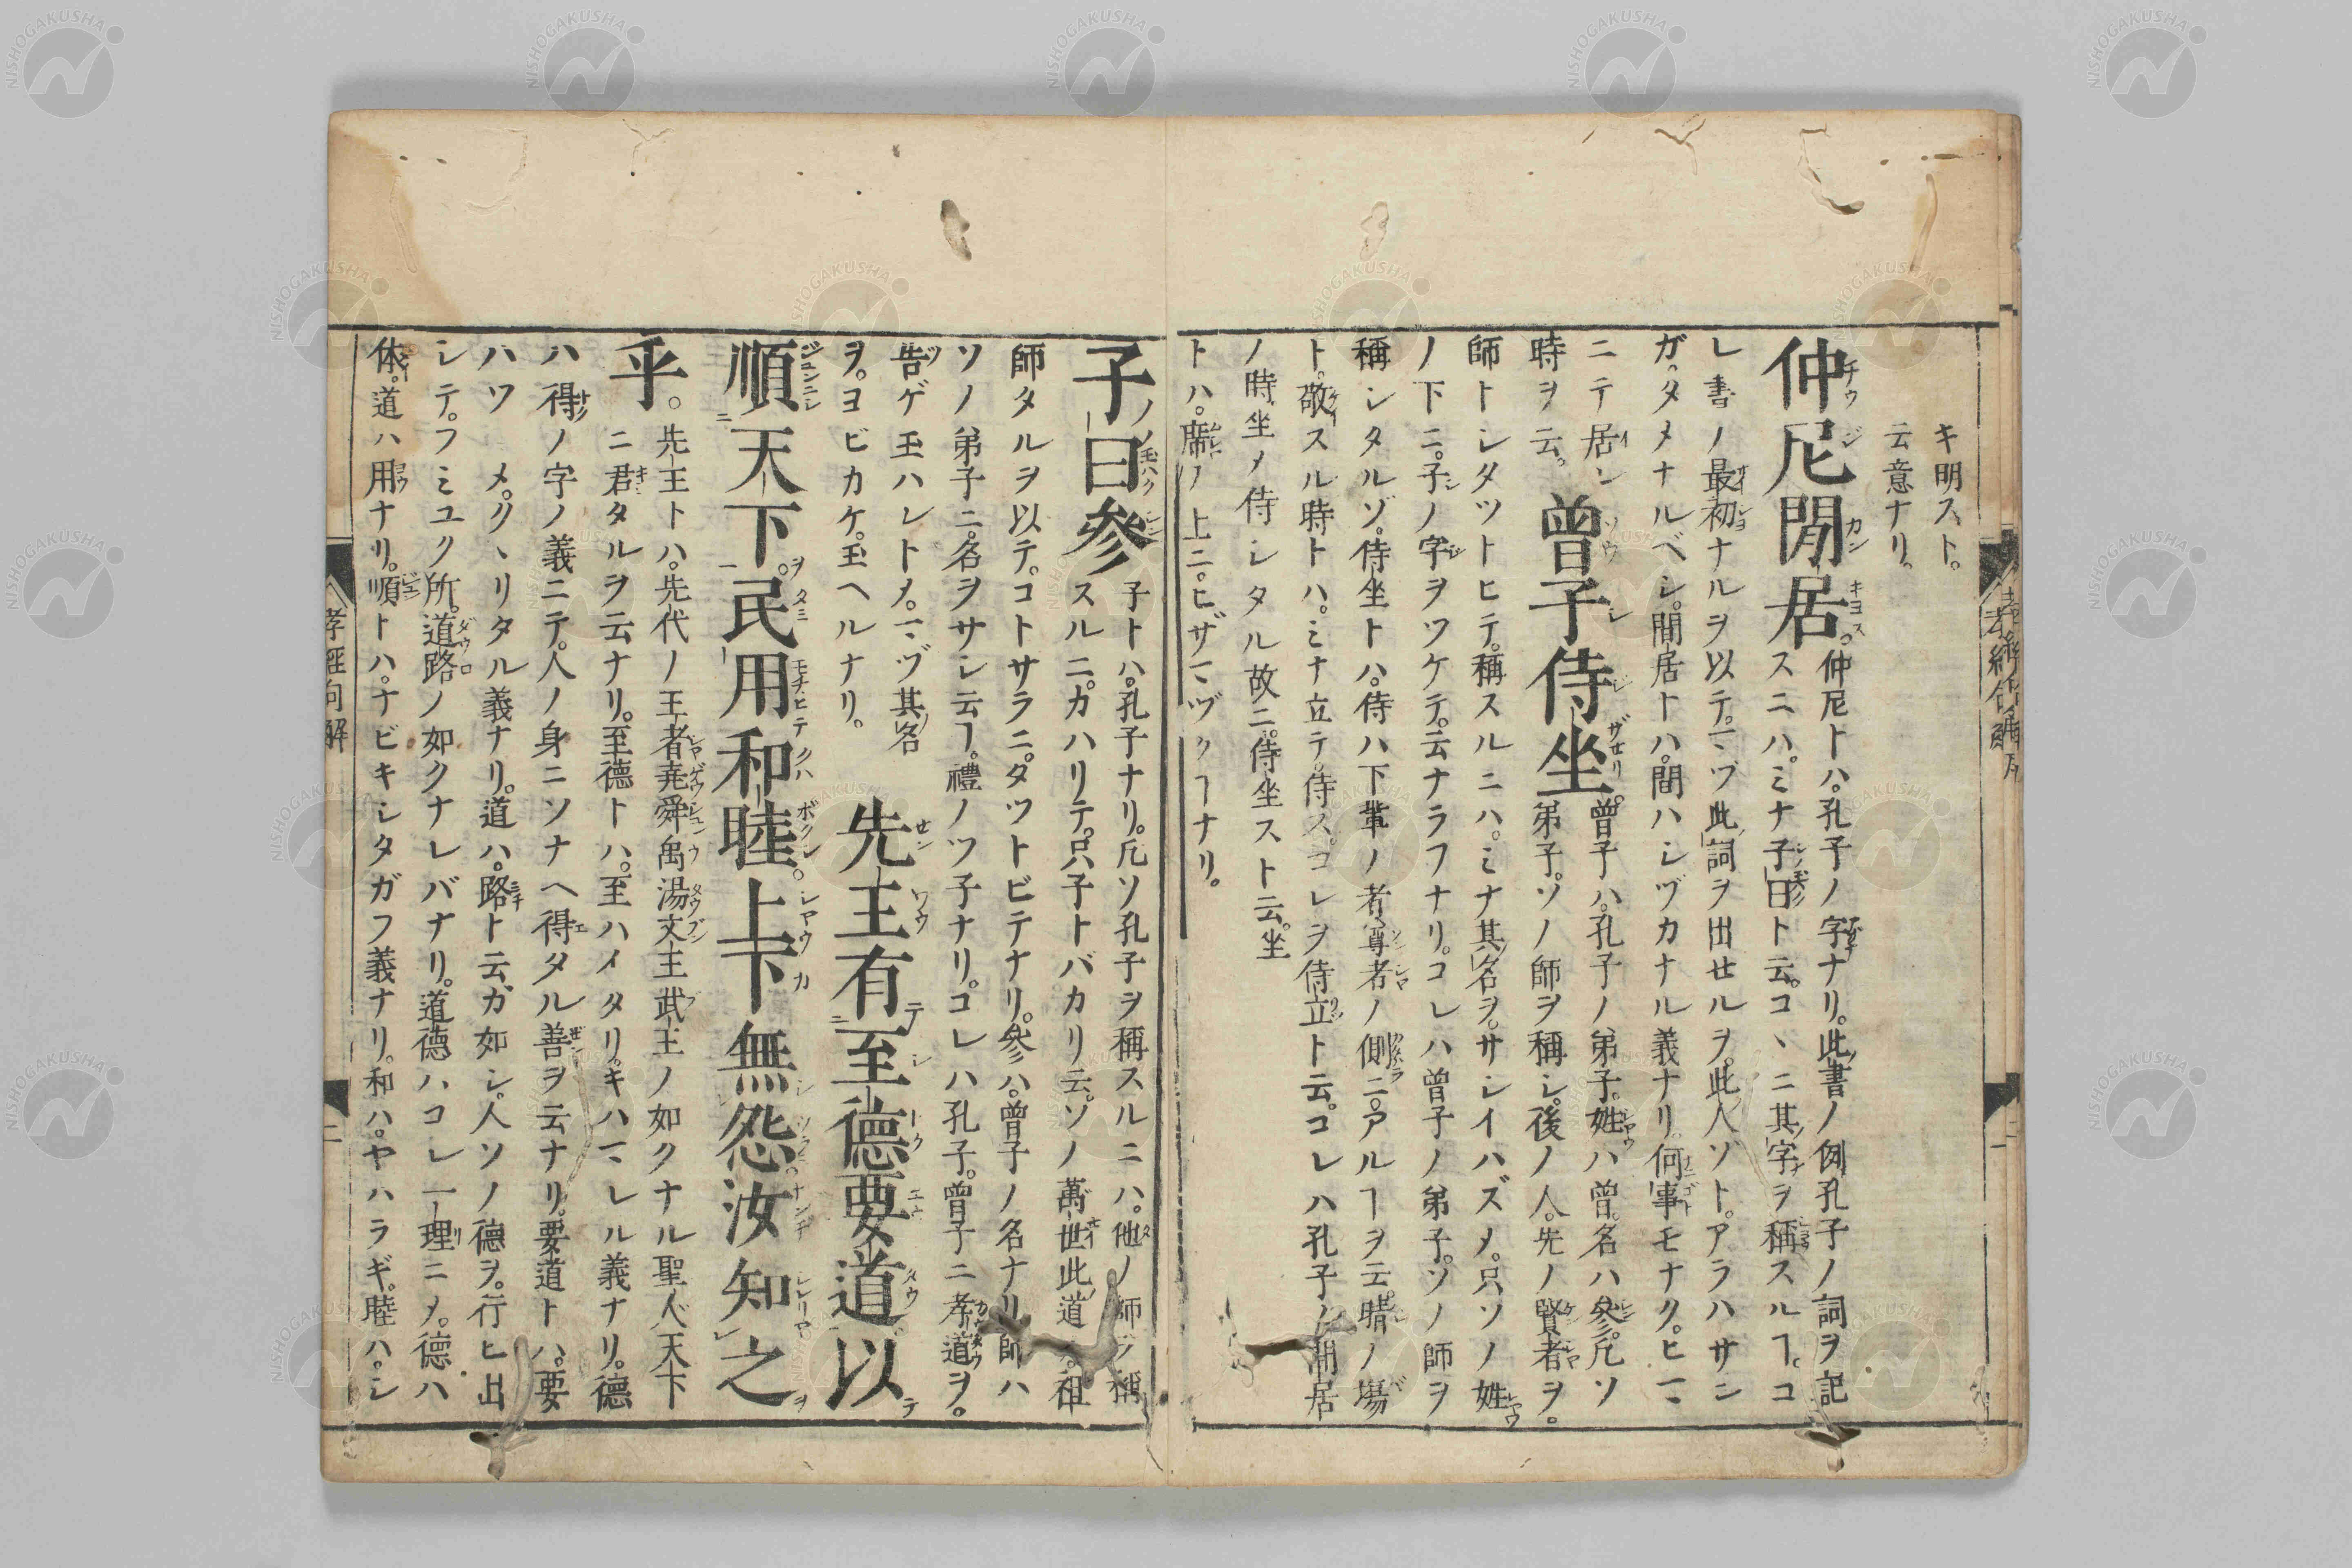 キ明スト。
云意ナリ。
仲尼閒居。仲尼トハ。孔子ノ字ナリ。此書ノ例孔子ノ詞ヲ記
スニハ。ミナ子曰ト云。コヽニ其字ヲ稱スルヿ。コ
レ書ノ最初ナルヲ以テ。マヅ此詞ヲ出セルヲ。此人ゾト。アラハサン
ガ。タメナルベシ。間居トハ。間ハシヅカナル義ナリ。何事モナク。ヒマ
ニテ居ン
時ヲ云。
曾子侍坐。曾子ハ。孔子ノ弟子。姓ハ曾。名ハ參。凡ソ
弟子。ソノ師ヲ稱シ。後ノ人。先ノ賢者ヲ。
師トシタツトヒテ。稱スルニハ。ミナ其名ヲ。サシイハズメ。只ソノ姓
ノ下ニ。子ノ字ヲツケテ。云ナラフナリ。コレハ曾子ノ弟子。ソノ師ヲ
稱シタルゾ。侍坐トハ。侍ハ下輩ノ者尊者ノ側ニ。アルヿヲ云。晴ノ場
ト。敬スル時トハ。ミナ立テ。侍ス。コレヲ侍立ト云。コレハ孔子ノ閒居
ノ時。坐メ侍シタル故ニ。侍坐スト云。坐
トハ。席ノ上ニ。ヒザマヅクヿナリ。
子曰參 子トハ。孔子ナリ。凡ソ孔子ヲ稱スルニハ。他ノ師ヲ稱
スルニ。カハリテ。只子トバカリ云。ソノ萬世此道ノ祖
師タルヲ以テ。コトサラニ。タツトビテナリ。參ハ。曾子ノ名ナリ師ハ
ソノ弟子ニ。名ヲサシ云ヿ。禮ノツ子ナリ。コレハ孔子。曾子ニ孝道ヲ。
告ゲ玉ハレトメ。マヅ其名
ヲ。ヨビカケ。玉ヘルナリ。
先王有至德要道以
順天下。民用和睦。上下無怨汝知之
乎。先王トハ。先代ノ王者堯舜禹湯文王武王ノ如クナル聖人天下
ニ君タルヲ云ナリ。至德トハ。至ハイタリ。キハマレル義ナリ。德
ハ得ノ字ノ義ニテ。人ノ身ニソナヘ得タル善ヲ云ナリ。要道トハ。要
ハツメ。クヽリタル義ナリ。道ハ。路ト云ガ如シ。人ソノ德ヲ。行ヒ出
シテ。フミユク所。道路ノ如クナレバナリ。道德ハコレ一理ニメ。德ハ
体。道ハ用ナリ。順トハ。ナビキシタガフ義ナリ。和ハ。ヤハラギ。睦ハ。シ
孝經句解
二
NISHOGAKUSHA